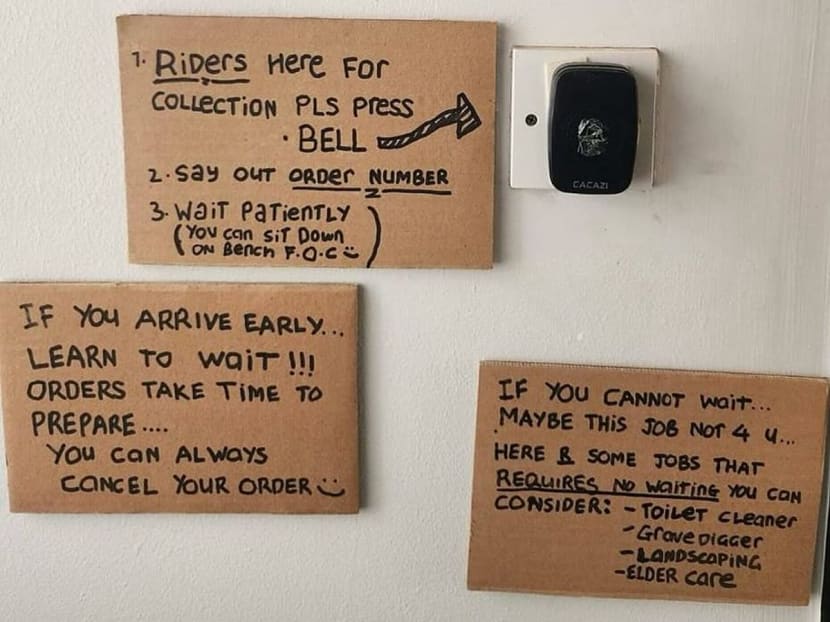 1. Riders Here For
COLLECTION PLS Press
• BELL
2. Say OUT ORDER NUMBER
3. Wait PaTiENTLY
(You can SiT Down
ON Bench F.O.C)
CACAZI
IF YOU ARRIVE EARLY...
LEARN TO WaiT !!!
ORDERS TAKE TiME TO
PREPARE....
YOU CaN ALWAYS
CANCEL YOUR ORDER
IF YOU CANNOT Wait...
MAYBE THiS JOB NOT 4 U...
HERE R SOME JOBS THAT
REQUIRES NO WaiTiNG YOU CaN
CONSIDER: - TOiLET CLeaner
- Grave DiGGer
- LANDSCAPiNG
- ELDER Care